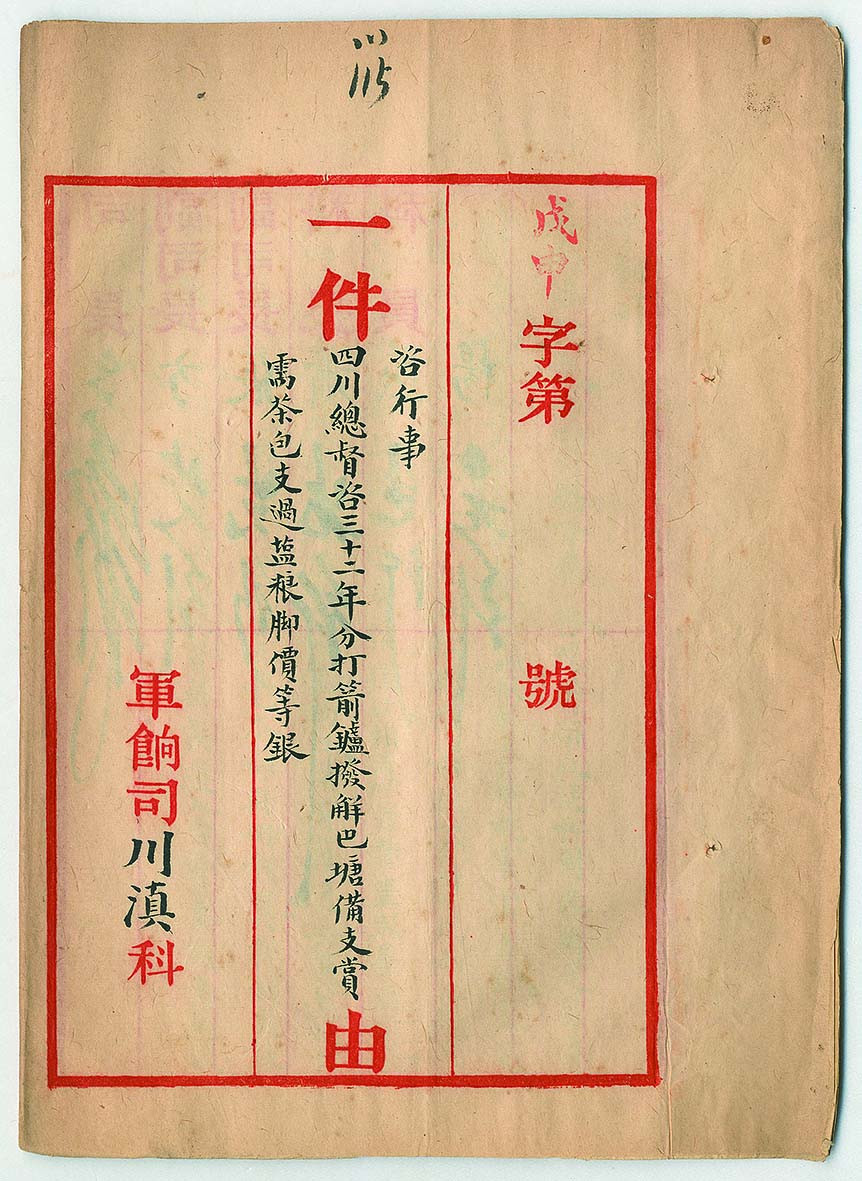 川
115
戊申字第　號
一件
咨行事
四川總督咨三十二年分打箭鑪撥解巴塘備支賞
需茶包支過盐粮脚價等銀
由
軍餉司川滇科